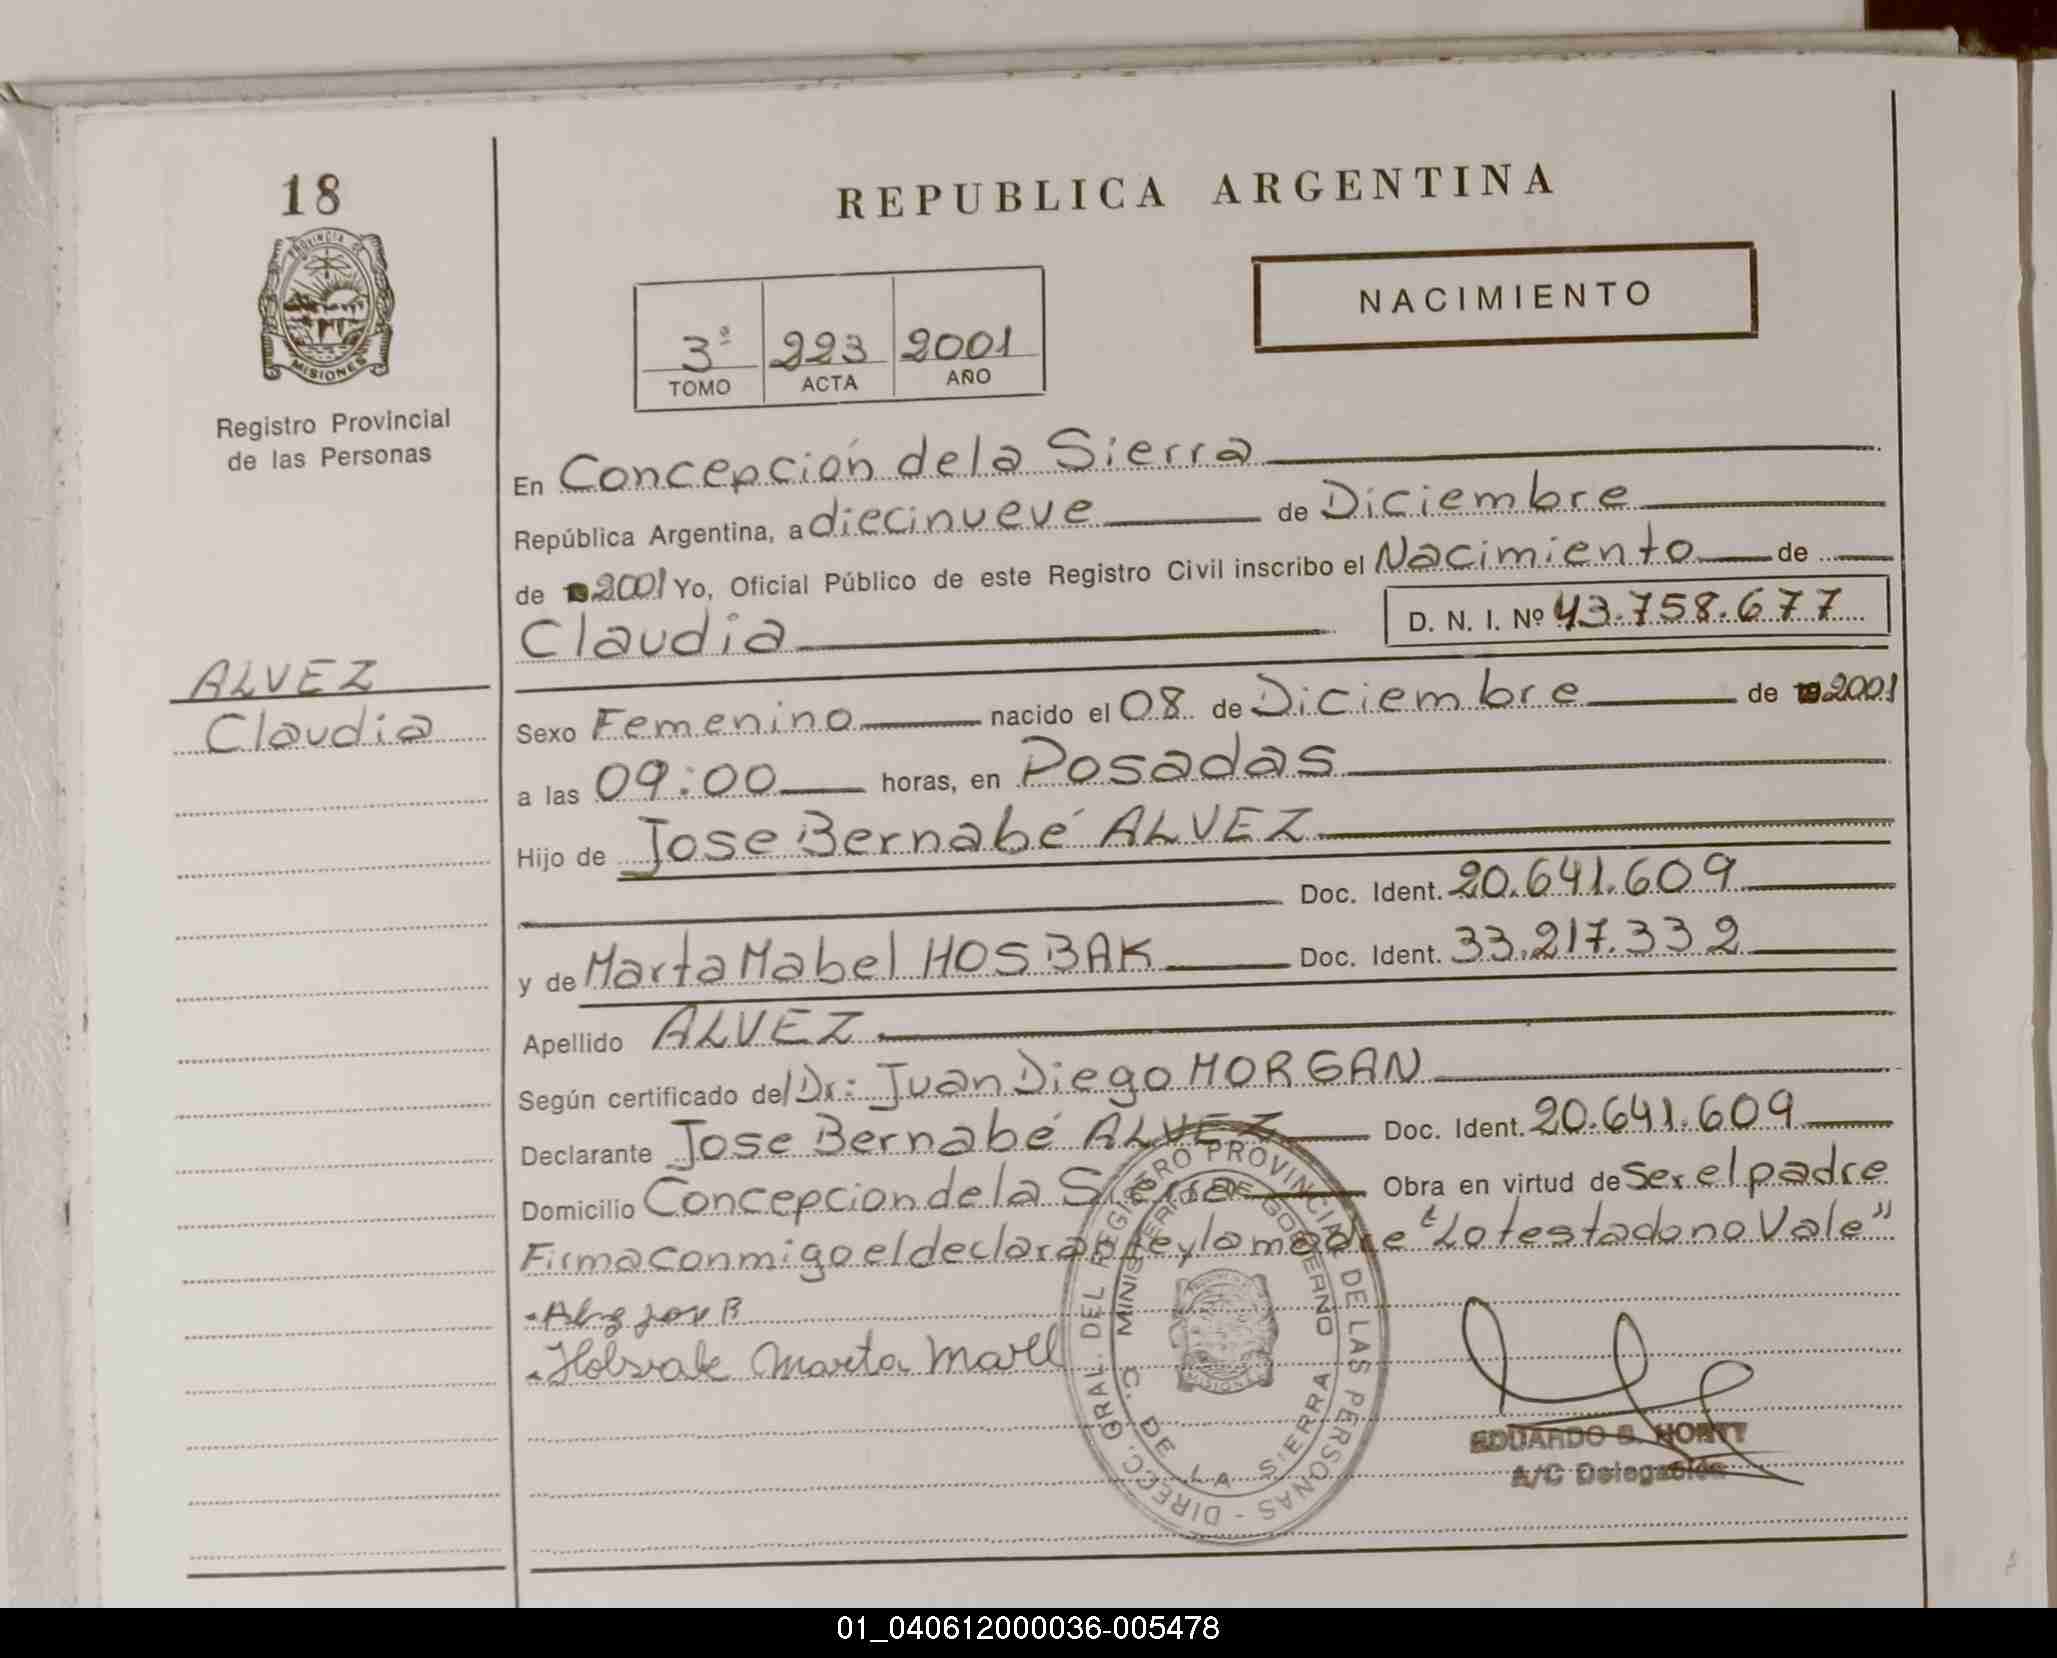 18
PROVINCIA DE
MISIONES
Registro Provincial
de las Personas
ALVEZ
Claudia
REPUBLICA ARGENTINA
NACIMIENTO
3ª 223 2001
TOMO ACTA AÑO
En Concepción de la Sierra
República Argentina, a diecinueve de Diciembre
de 2001 Yo, Oficial Público de este Registro Civil inscribo el Nacimiento de
Claudia D. N. I. Nº 43.758.677
Sexo Femenino nacido el 08 de Diciembre de 2001
a las 09:00 horas, en Posadas
Hijo de Jose Bernabé ALVEZ
Doc. Ident. 20.641.609
y de Marta Mabel HOSBAK Doc. Ident. 33.217.332
Apellido ALVEZ
Según certificado del Dr: Juan Diego MORGAN
Declarante Jose Bernabé ALVEZ Doc. Ident. 20.641.609
Domicilio Concepcion de la Sierra Obra en virtud de Ser el padre
Firma conmigo el declarante y la madre "Lo testado no Vale"
Marta
DIRECC. GRAL. DEL REGISTRO PROVINCIAL DE LAS PERSONAS -
MINISTERIO DE GOBIERNO
C. DE LA SIERRA
MISIONES
EDUARDO
A/C Delegación
01_040612000036-005478